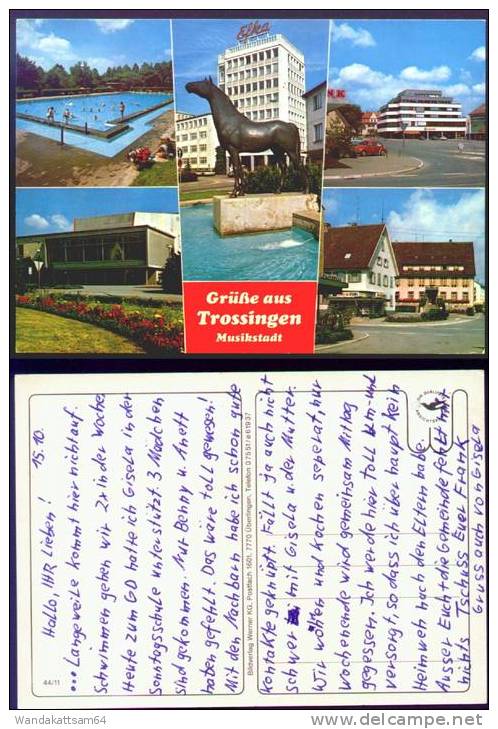 Efka
NK
Grüße aus
Trossingen
Musikstadt
15.10.
Hallo, IHR Lieben!
... Langeweile kommt hier nicht auf.
Schwimmen gehen wir 2x in der Woche.
Heute zum GD hatte ich Gisela in der
Sonntagsschule unterstützt. 3 Mädchen
sind gekommen. Nur Benny u. Anett
haben gefehlt. Das wäre toll gewesen!
Mit den Nachbarn habe ich schon gute
44/11
Bildverlag Werner KG, Postfach 1601, 7770 Überlingen, Telefon 07551/61937
Kontakte geknüpft. Fällt ja auch nicht
schwer mit Gisela u der Mutter.
Wir wollten und kochen seperat, nur
Wochenende wird gemeinsam Mittag
gegessen. Ich werde hier toll um- und
versorgt, so dass ich über haupt kein
Heimweh nach den Eltern habe.
Ausser Euch + die Gemeinde fehlt mir
nichts Tschüss Euer Frank
Gruss auch von Gisela
Wandakattsam64